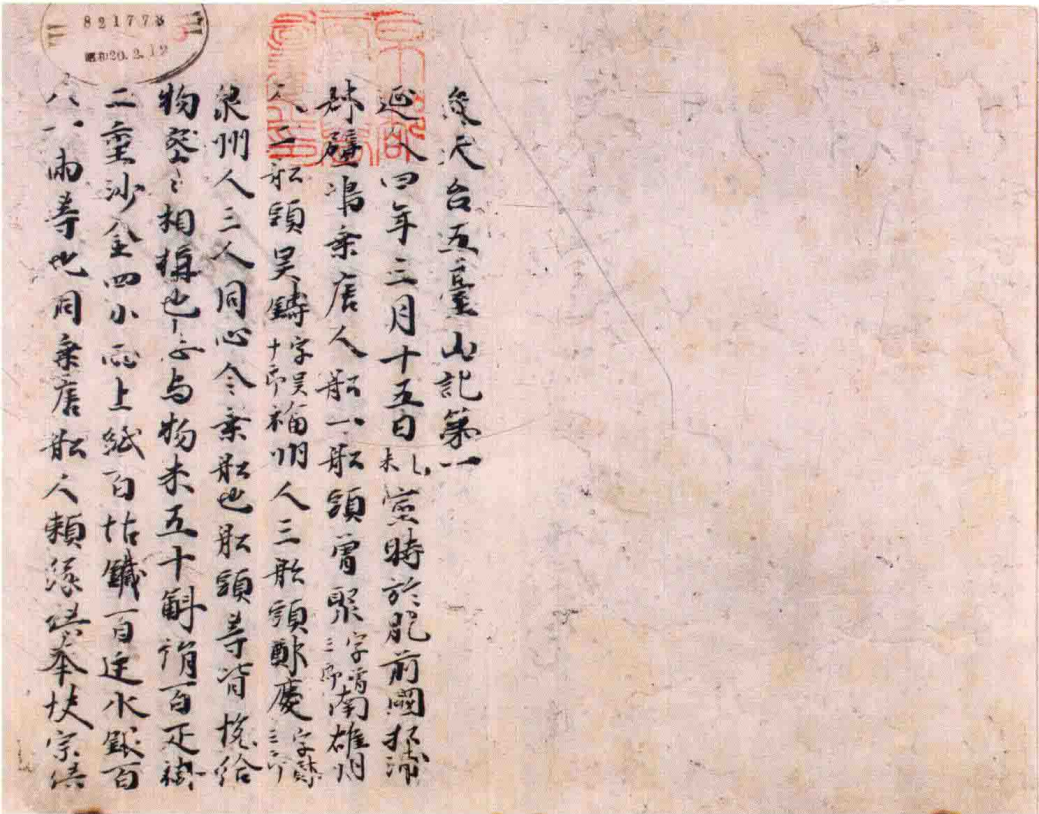 821773
昭和20.2.12
参天台五臺山記第一
延久四年三月十五日乙未寅時於肥前國松浦
郡壁嶋乗唐人舩一舩頭曽聚字曽三郎南雄州
人二舩頭吴鑄字吴十郎福州人三舩頭鄭慶字鄭三郎
泉州人三人同心令乗舩也舩頭等皆悦給
物密〻相構也志与物米五十斛絹百疋褂
二重沙金四小両上紙百帖鐵百廷水銀百
八十両等也同乗唐舩人頼縁供奉快宗供